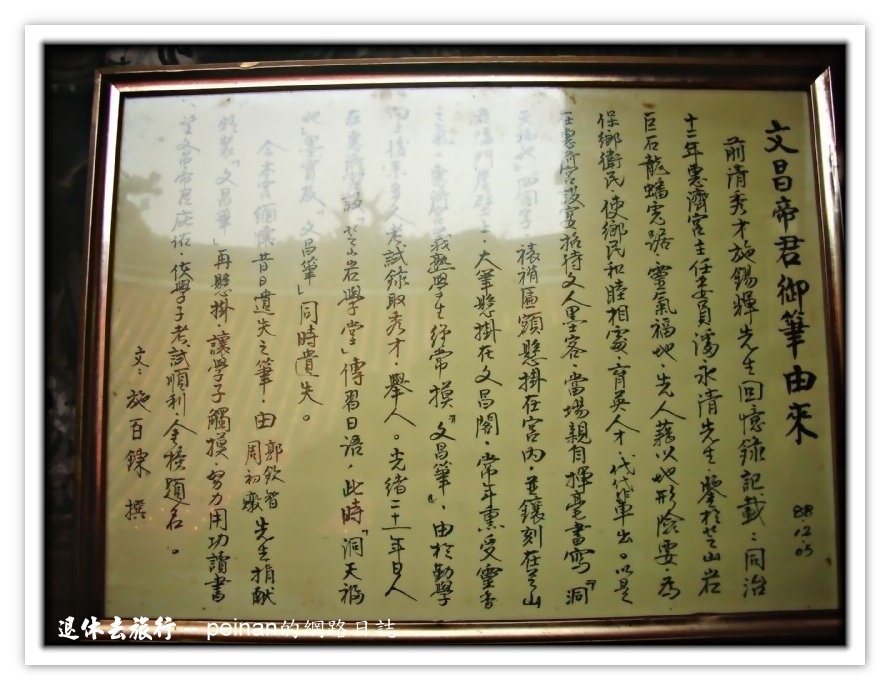 文昌帝君御筆由來
88.12.05
前清秀才施錫輝先生回憶錄記載：同治
十二年惠濟宮主任委員潘永清先生，鑒於芝山岩
巨石龍蟠虎踞，靈氣福地，先人藉以地形險要，為
保鄉衛民，使鄉民和睦相處，育英人才，代代輩出。以是
在惠濟宮設宴招待文人墨客，當場親自揮毫書寫『洞
天福地』四個字，裱褙匾額懸掛在宮內，並鑲刻在芝山
岩隘門岩壁上，大筆懸掛在文昌閣，常年熏受靈香
之氣，惠濟宮義塾學生經常摸『文昌筆』，由於勤學
而上後來多人考試錄取秀才，舉人。光緒二十一年日人
在惠濟宮設「芝山岩學堂」傳習日語，此時「洞天福
地」墨寶及「文昌筆」同時遺失。
今本宮緬懷昔日遺失之筆，由郭欽智 周初 先生捐獻
「文昌筆」再懸掛，讓學子觸摸，努力用功讀書
文昌帝君庇佑，使學子考試順利，金榜題名。
文：施百鍊 撰
退休去旅行 peinan的網路日誌